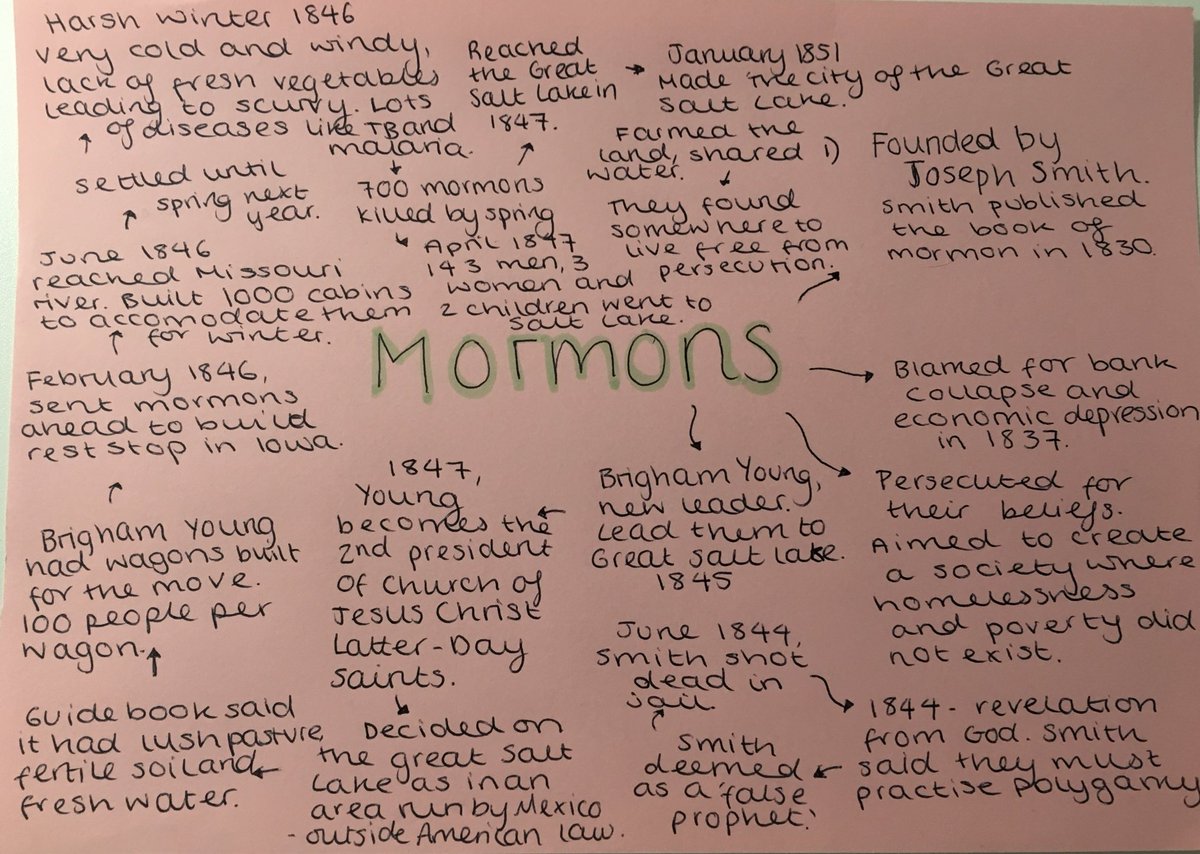 Harsh winter 1846
very cold and windy,
lack of fresh vegetables
leading to scurvy. Lots
of diseases like TB and
malaria.
Reached
the Great
Salt Lake in
1847.
January 1851
Made the city of the Great
Salt Lake.
Farmed the
land, shared 1)
water.
They found
somewhere to
live free from
persecution.
Founded by
Joseph Smith.
Smith published
the book of
mormon in 1830.
settled until
spring next
year.
700 mormons
killed by spring
April 1847
143 men, 3
women and
2 children went to
Salt Lake.
June 1846
reached Missouri
river. Built 1000 cabins
to accomodate them
for winter.
Mormons
February 1846,
sent mormons
ahead to build
rest stop in Iowa.
Blamed for bank
collapse and
economic depression
in 1837.
Brigham Young
had wagons built
for the move.
100 people per
wagon.
1847,
Young
becomes the
2nd president
of Church of
Jesus Christ
Latter-Day
Saints.
Brigham Young,
new leader.
Lead them to
Great Salt Lake.
1845
Persecuted for
their beliefs.
Aimed to create
a society where
homelessness
and poverty did
not exist.
June 1844,
Smith shot
dead in
jail.
Guide book said
it had lush pasture,
fertile soil and
fresh water.
Decided on
the great Salt
Lake as in an
area run by Mexico
- outside American law.
Smith
deemed
as a 'false
prophet.'
1844 - revelation
from God. Smith
said they must
practise polygamy